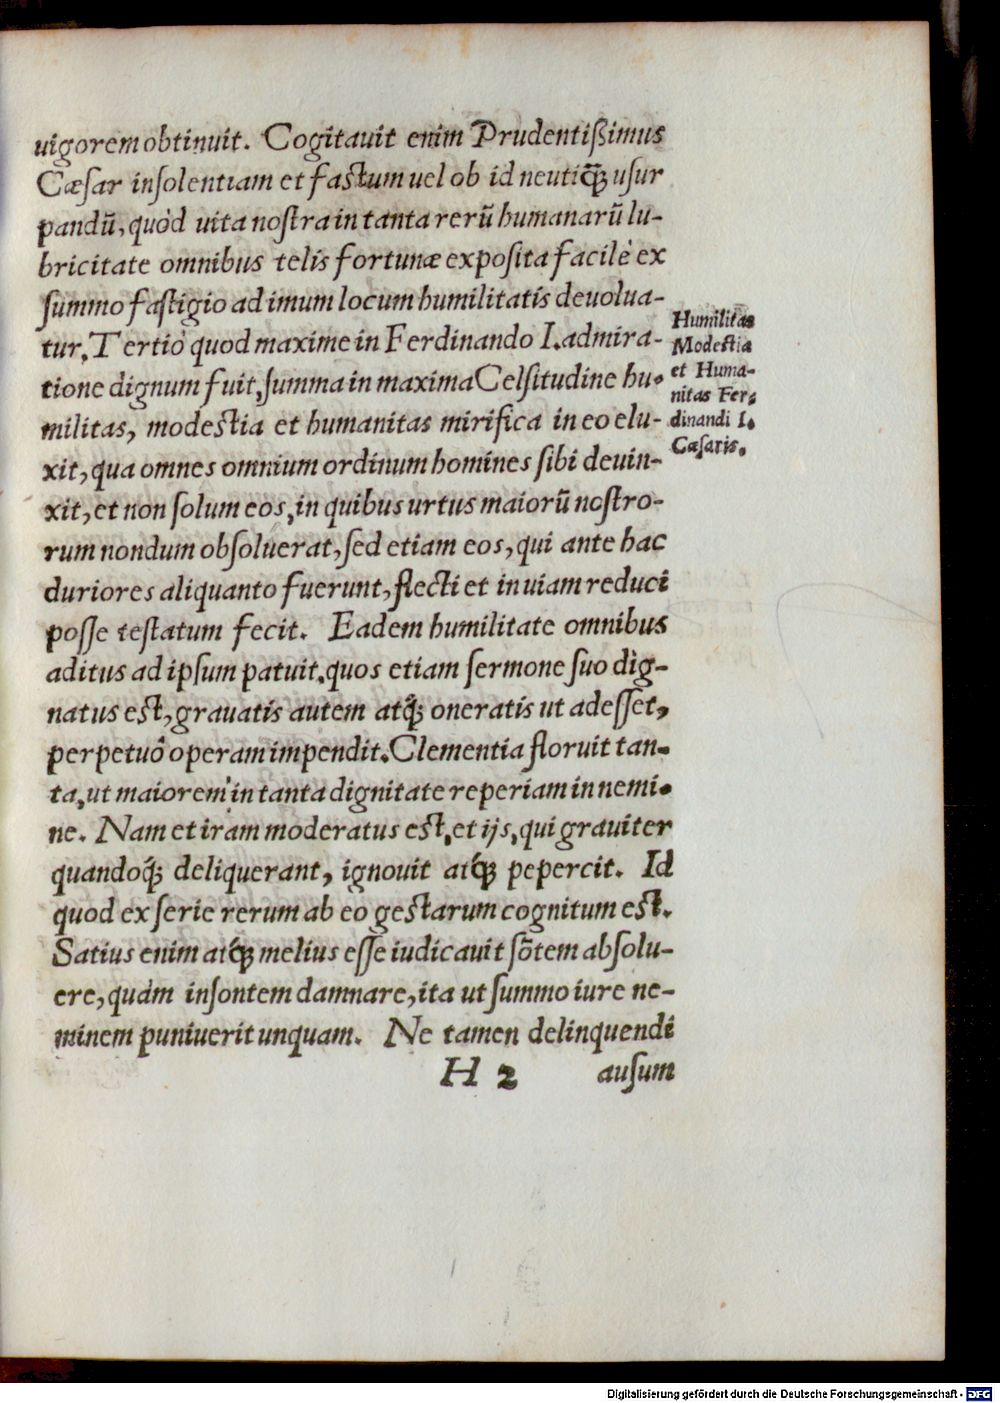 uigorem obtinuit. Cogitauit enim Prudentißimus
Cæſar inſolentiam et faſtum uel ob id neutiq̃ꝫ uſur
pandū, quòd uita noſtra in tanta rerū humanarū lu-
bricitate omnibus telis fortunæ expoſita facilè ex
ſummo faſtigio ad imum locum humilitatis deuolua-
tur. Tertiò quod maxime in Ferdinando I. admira-
tione dignum fuit, ſumma in maxima Celſitudine hu-
militas, modeſtia et humanitas mirifica in eo elu-
xit, qua omnes omnium ordinum homines ſibi deuin-
xit, et non ſolum eos, in quibus urtus maiorū noſtro-
rum nondum obſoluerat, ſed etiam eos, qui ante hac
duriores aliquanto fuerunt, flecti et in uiam reduci
poſſe teſtatum fecit. Eadem humilitate omnibus
aditus ad ipſum patuit, quos etiam ſermone ſuo dig-
natus eſt, grauatis autem atq́ꝫ oneratis ut adeſſet,
perpetuò operam impendit. Clementia floruit tan-
ta, ut maiorem in tanta dignitate reperiam in nemi-
ne. Nam et iram moderatus eſt, et ijs, qui grauiter
quandoq́ꝫ deliquerant, ignouit atq́ꝫ pepercit. Id
quod ex ſerie rerum ab eo geſtarum cognitum eſt.
Satius enim atq́ꝫ melius eſſe iudicauit ſōtem abſolu-
ere, quàm inſontem damnare, ita ut ſummo iure ne-
minem puniuerit unquam. Ne tamen delinquendi
H 2 auſum
Humilitas
Modeſtia
et Huma-
nitas Fer-
dinandi I.
Cæſaris.
Digitalisierung gefördert durch die Deutsche Forschungsgemeinschaft - DFG